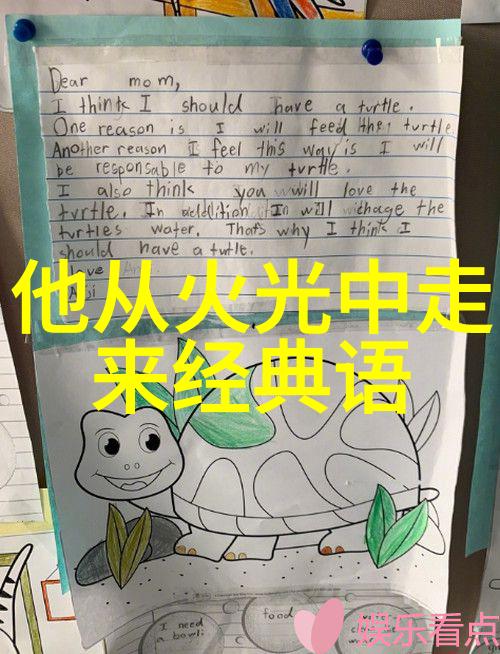 Dear mom,
I think I should have a turtle.
One reason is I will feed the turtle.
Another reason I feel this way is I will
be responsable to my turtle.
I also think you will love the
turtle. In addition I will chage the
turtles water. That's why I think I
should have a turtle.
Love
他从火光中走
来经典语
I need
a bowl
food
娱乐看点